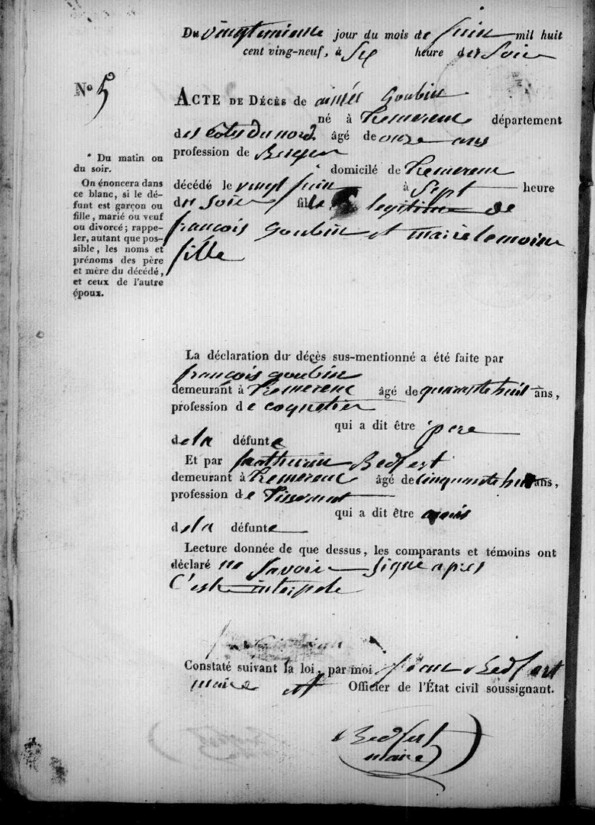 Du vingtieme jour du mois de juin mil huit
cent vingt-neuf, à six heure du soir
N.o 5
ACTE DE DÉCÈS de aimée Goubin
né à tremereuc département
des cotes du nord âgé de onze ans
profession de
domicilé de tremereuc
décédé le vingt juin à sept heure
du soir fille legitime de
françois Goubin et marie lemoine
fille
* Du matin ou
du soir.
On énoncera dans
ce blanc, si le dé-
funt est garçon ou
fille, marié ou veuf
ou divorcé; rappe-
ler, autant que pos-
sible, les noms et
prénoms des père
et mère du décédé,
et ceux de l'autre
époux.
La déclaration du décès sus-mentionné a été faite par
françois goubin
demeurant à tremereuc âgé de quarante huit ans,
profession de coquetier
qui a dit être pere
de la défunte
Et par mathurin Bedfert
demeurant à tremereuc âgé de cinquante huit ans,
profession de tisserant
qui a dit être amis
de la défunte
Lecture donnée de que dessus, les comparants et témoins ont
déclaré ne savoir signe apres
Constaté suivant la loi, par moi jean Bedfert
maire Officier de l'État civil soussignant.
Bedfert
maire